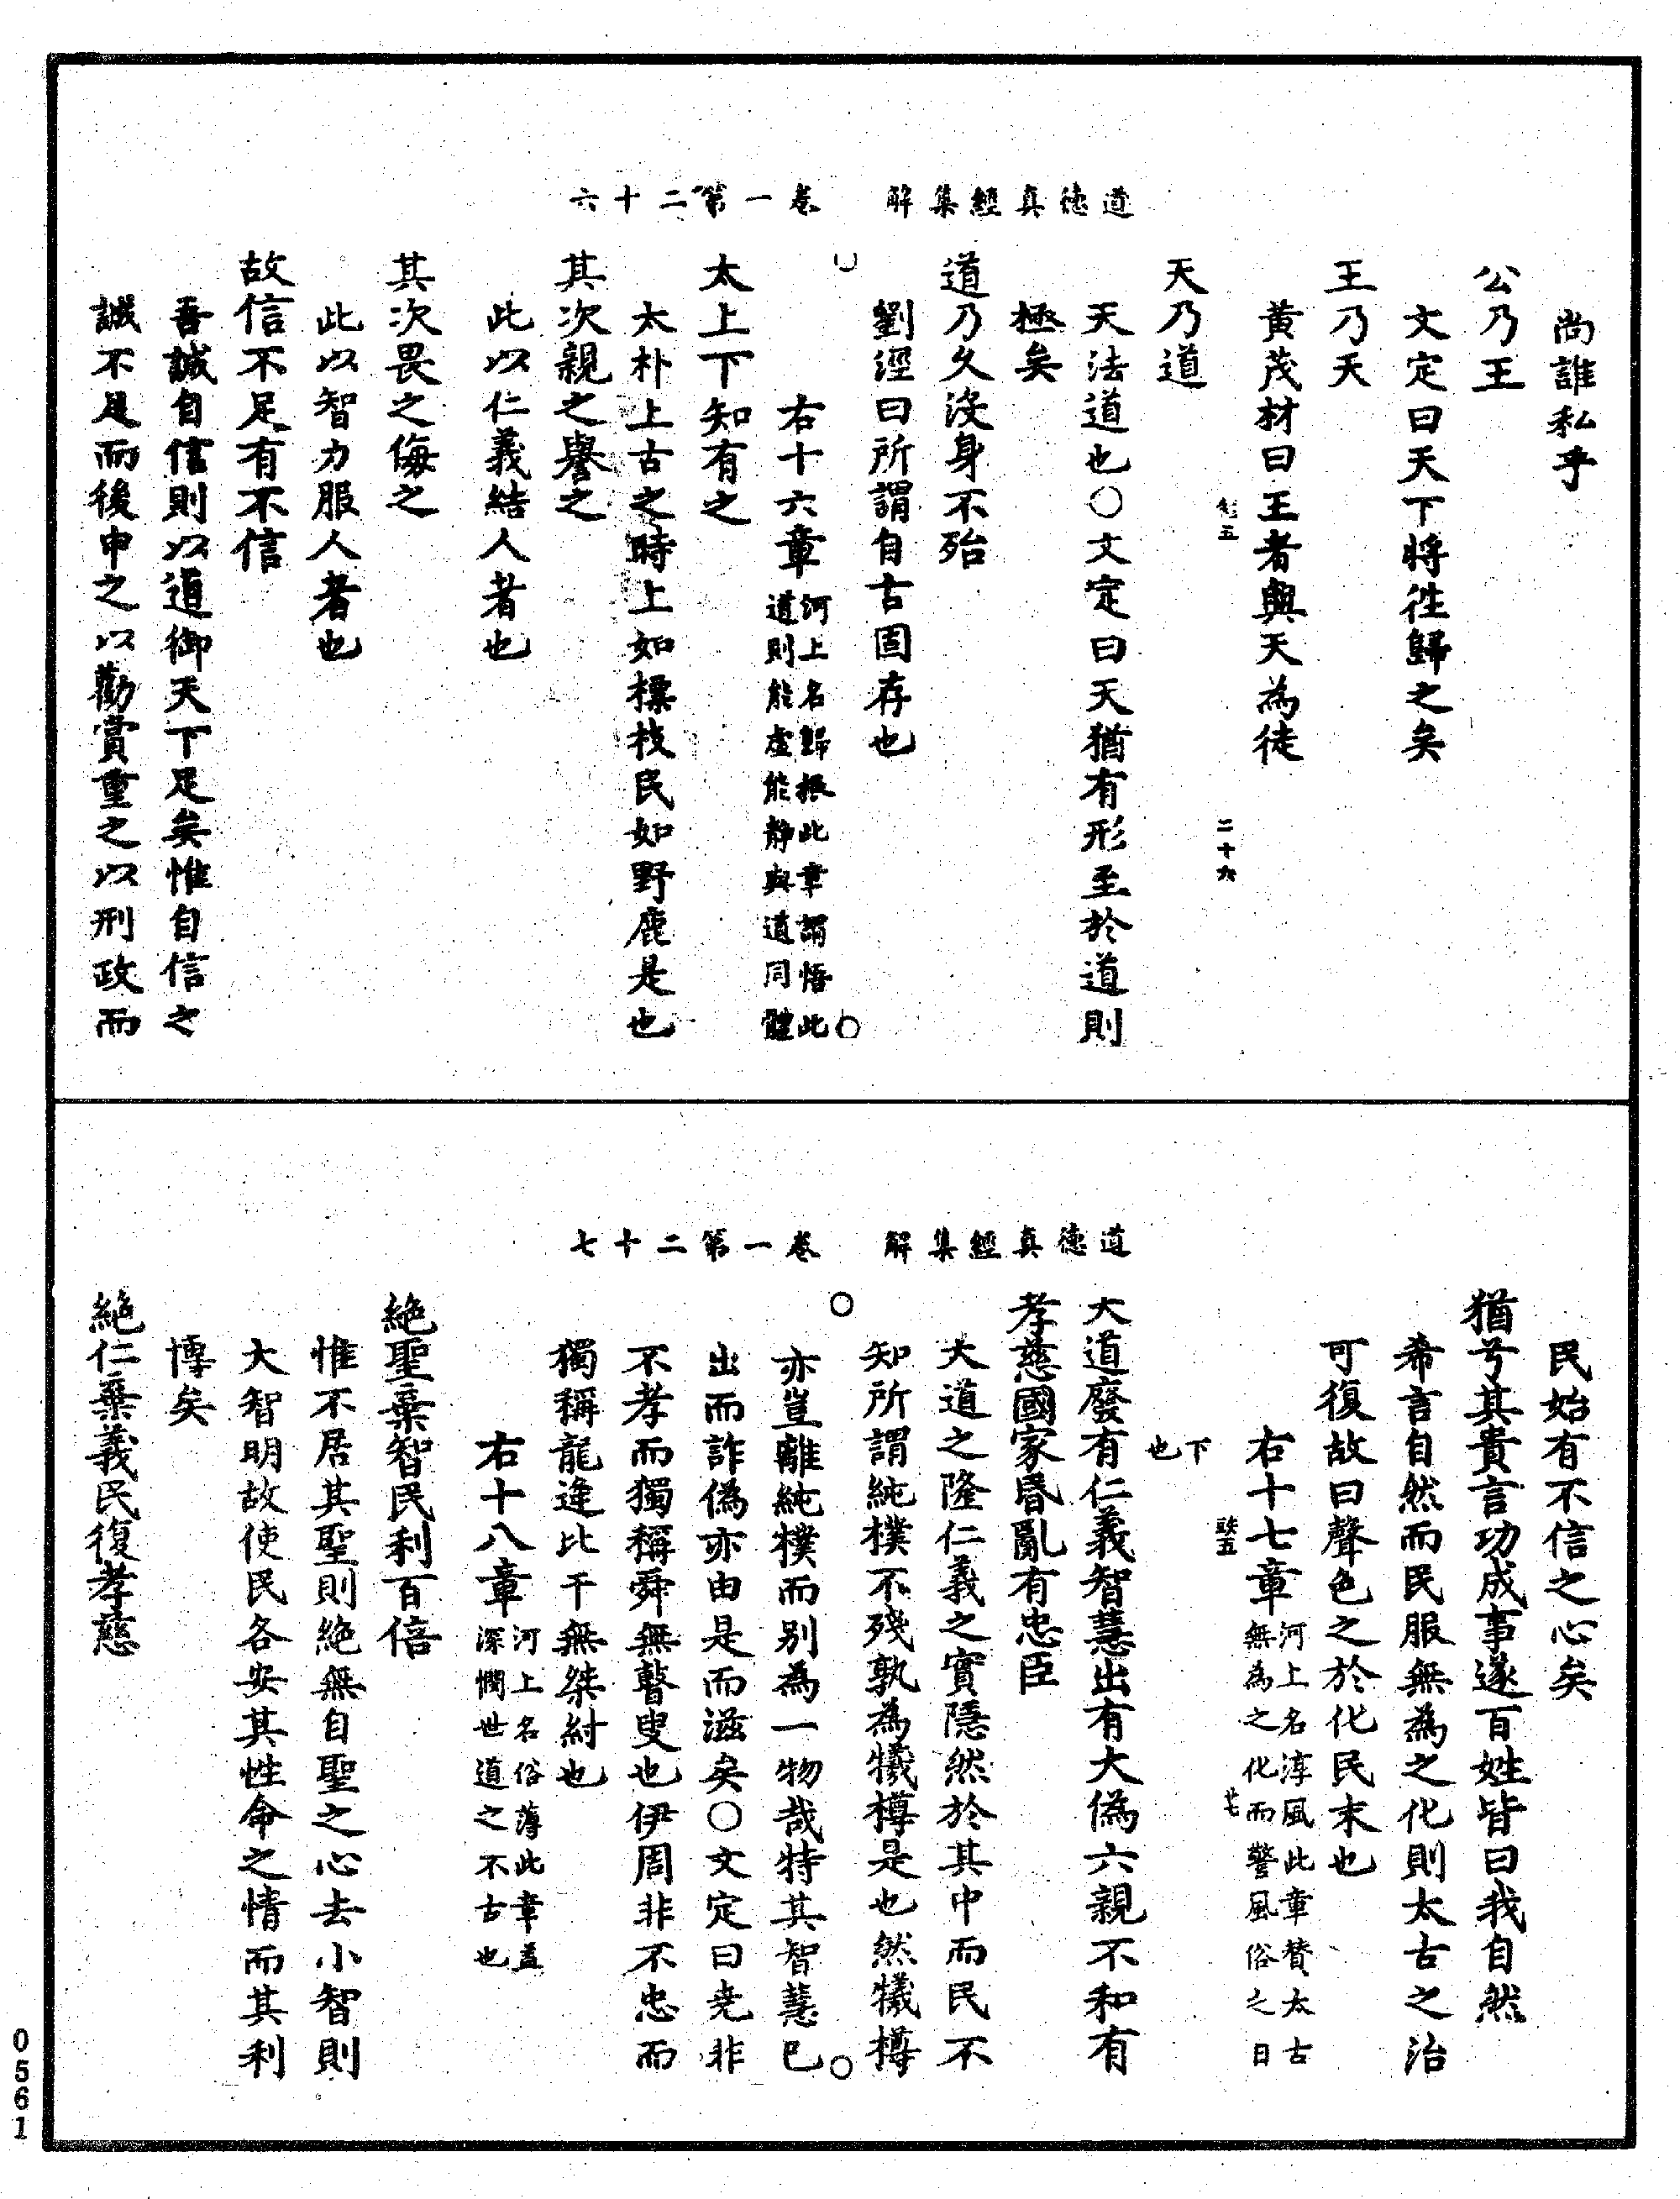 道德真經集解　卷一第二十六
尚誰私乎
公乃王
文定曰天下將徃歸之矣
王乃天
黃茂材曰王者與天為徒
五
二十六
天乃道
天法道也○文定曰天猶有形至於道則
極矣
道乃久沒身不殆
劉涇曰所謂自古固存也
右十六章
河上名歸根此章謂悟此
道則能虛能靜與道同體
太上下知有之
太朴上古之時上如標枝民如野鹿是也
其次親之譽之
此以仁義結人者也
其次畏之侮之
此以智力服人者也
故信不足有不信
吾誠自信則以道御天下足矣惟自信之
誠不足而後申之以勸賞重之以刑政而
道德真經集解　卷一第二十七
民始有不信之心矣
猶兮其貴言功成事遂百姓皆曰我自然
希言自然而民服無為之化則太古之治
可復故曰聲色之於化民末也
右十七章
河上名淳風此章贊太古
無為之化而警風俗之日
五
廿七
下
也
大道廢有仁義智慧出有大偽六親不和有
孝慈國家昏亂有忠臣
大道之隆仁義之實隱然於其中而民不
知所謂純樸不殘孰為犧樽是也然犧樽
亦豈離純樸而別為一物哉特其智慧已
出而詐偽亦由是而滋矣○文定曰堯非
不孝而獨稱舜無瞽叟也伊周非不忠而
獨稱龍逄比干無桀紂也
右十八章
河上名俗薄此章蓋
深憫世道之不古也
絕聖棄智民利百倍
惟不居其聖則絕無自聖之心去小智則
大智明故使民各安其性命之情而其利
博矣
絕仁棄義民復孝慈
0561